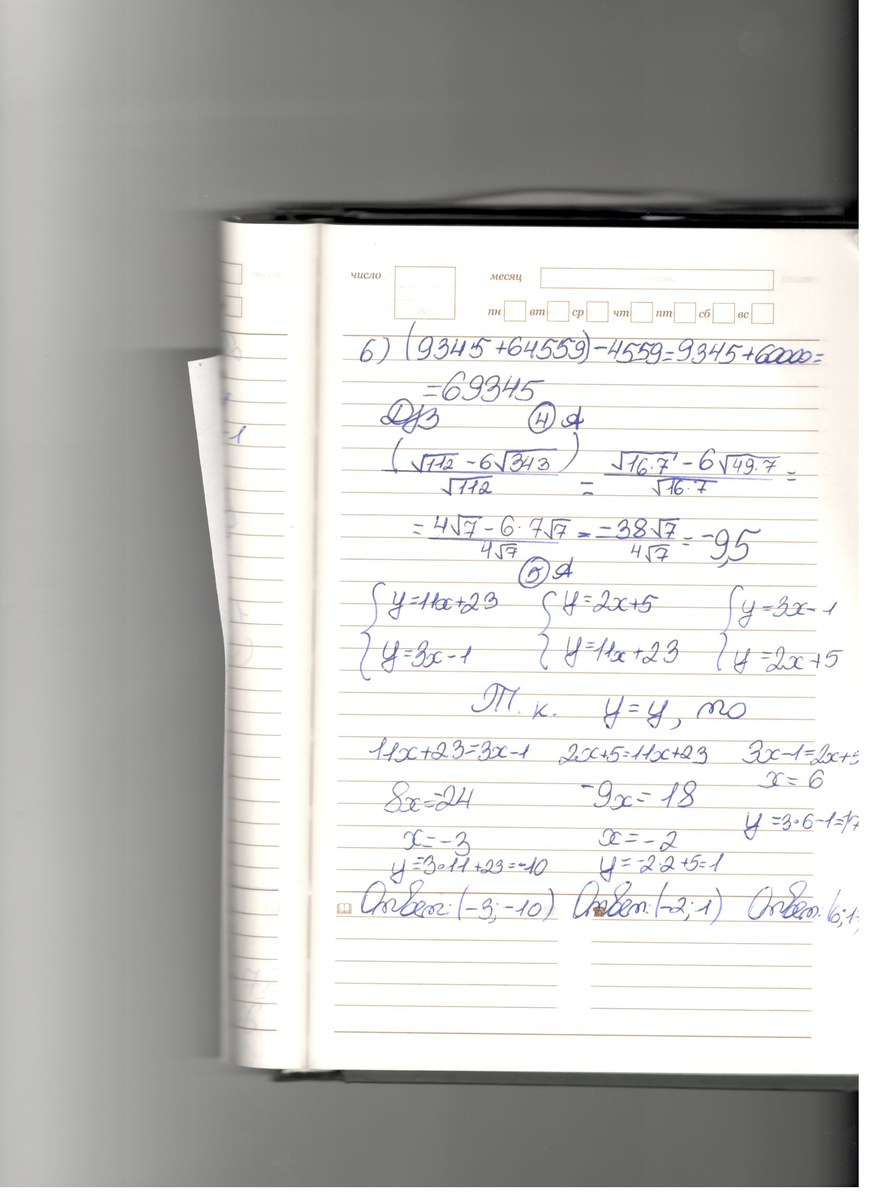 число месяц
пн вт ср чт пт сб вс
6) (9345+64559)-4559=9345+60000=
=69345
Д/З 4 А
(√112 - 6√343)/√112 = (√16·7 - 6√49·7)/√16·7 =
= (4√7 - 6·7√7)/4√7 = -38√7/4√7 = -9,5
5 А
{y=11x+23 {y=2x+5 {y=3x-1
{y=3x-1 {y=11x+23 {y=2x+5
Т.к. y=y, то
11x+23=3x-1 2x+5=11x+23 3x-1=2x+5
x=6
8x=-24 -9x=18
y=3·6-1=17
x=-3 x=-2
y=-3·11+23=-10 y=-2·2+5=1
Ответ: (-3;-10) Ответ: (-2;1) Ответ: (6;1